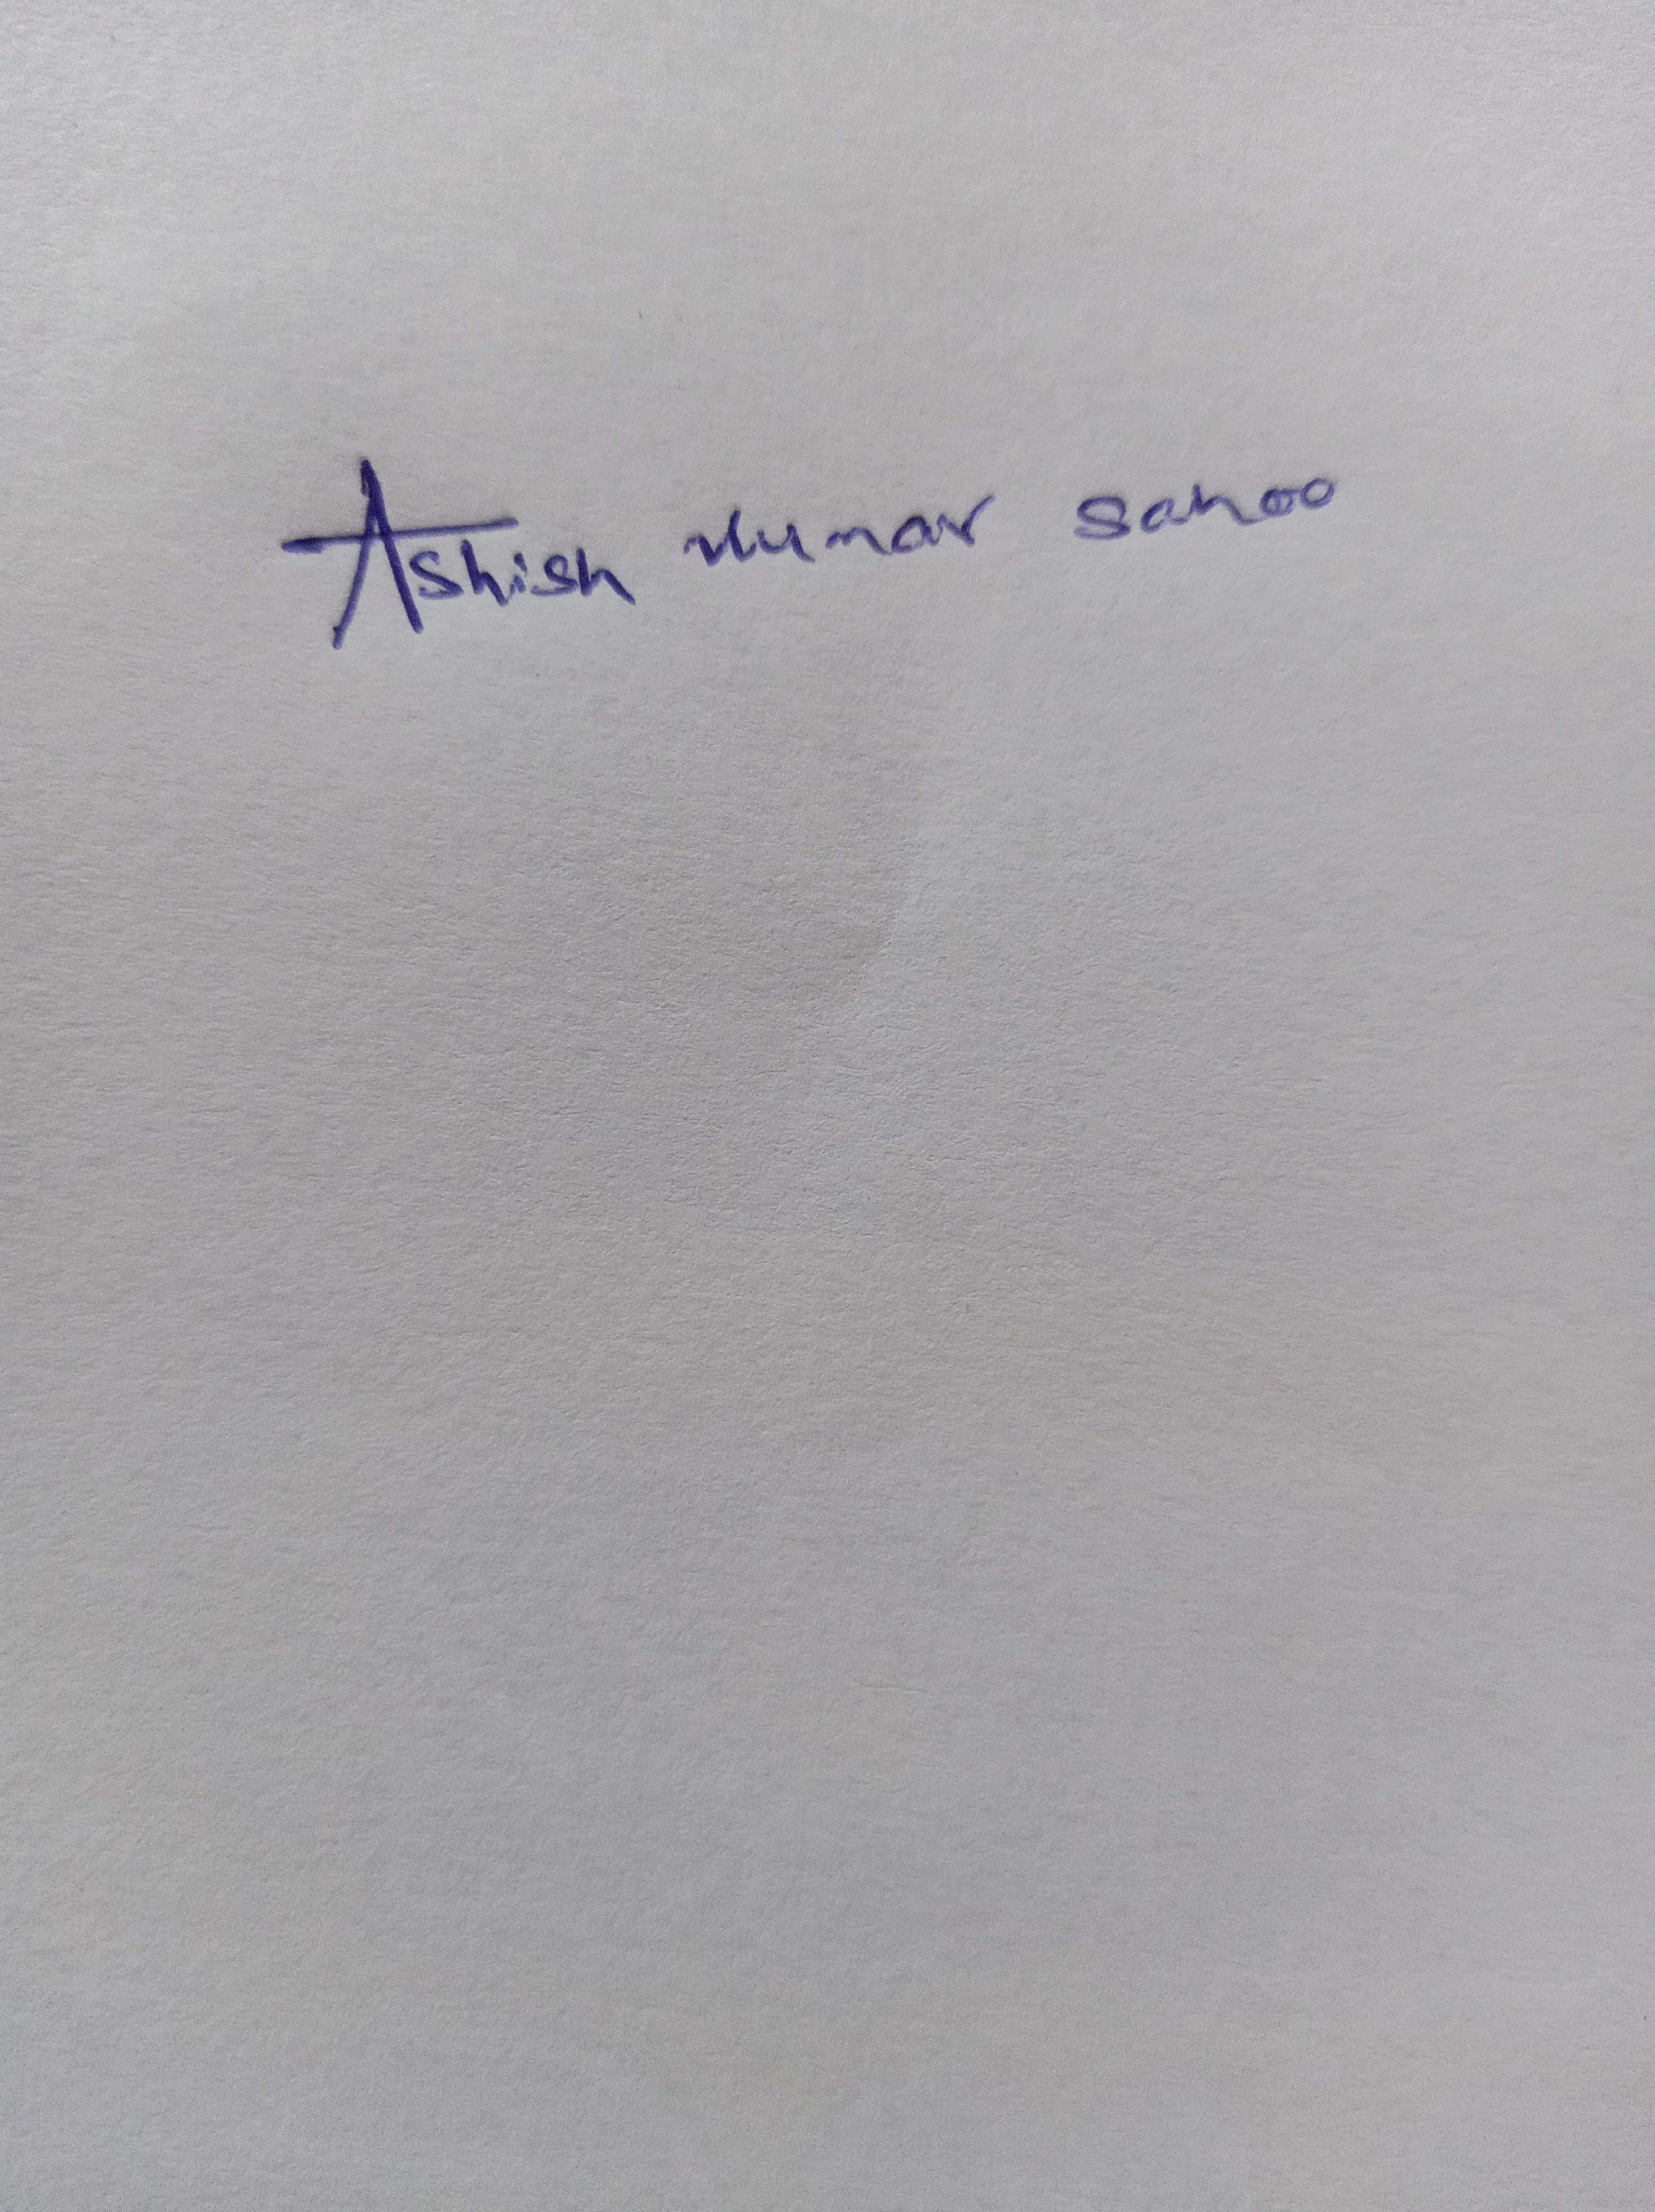 Ashish Kumar Sahoo